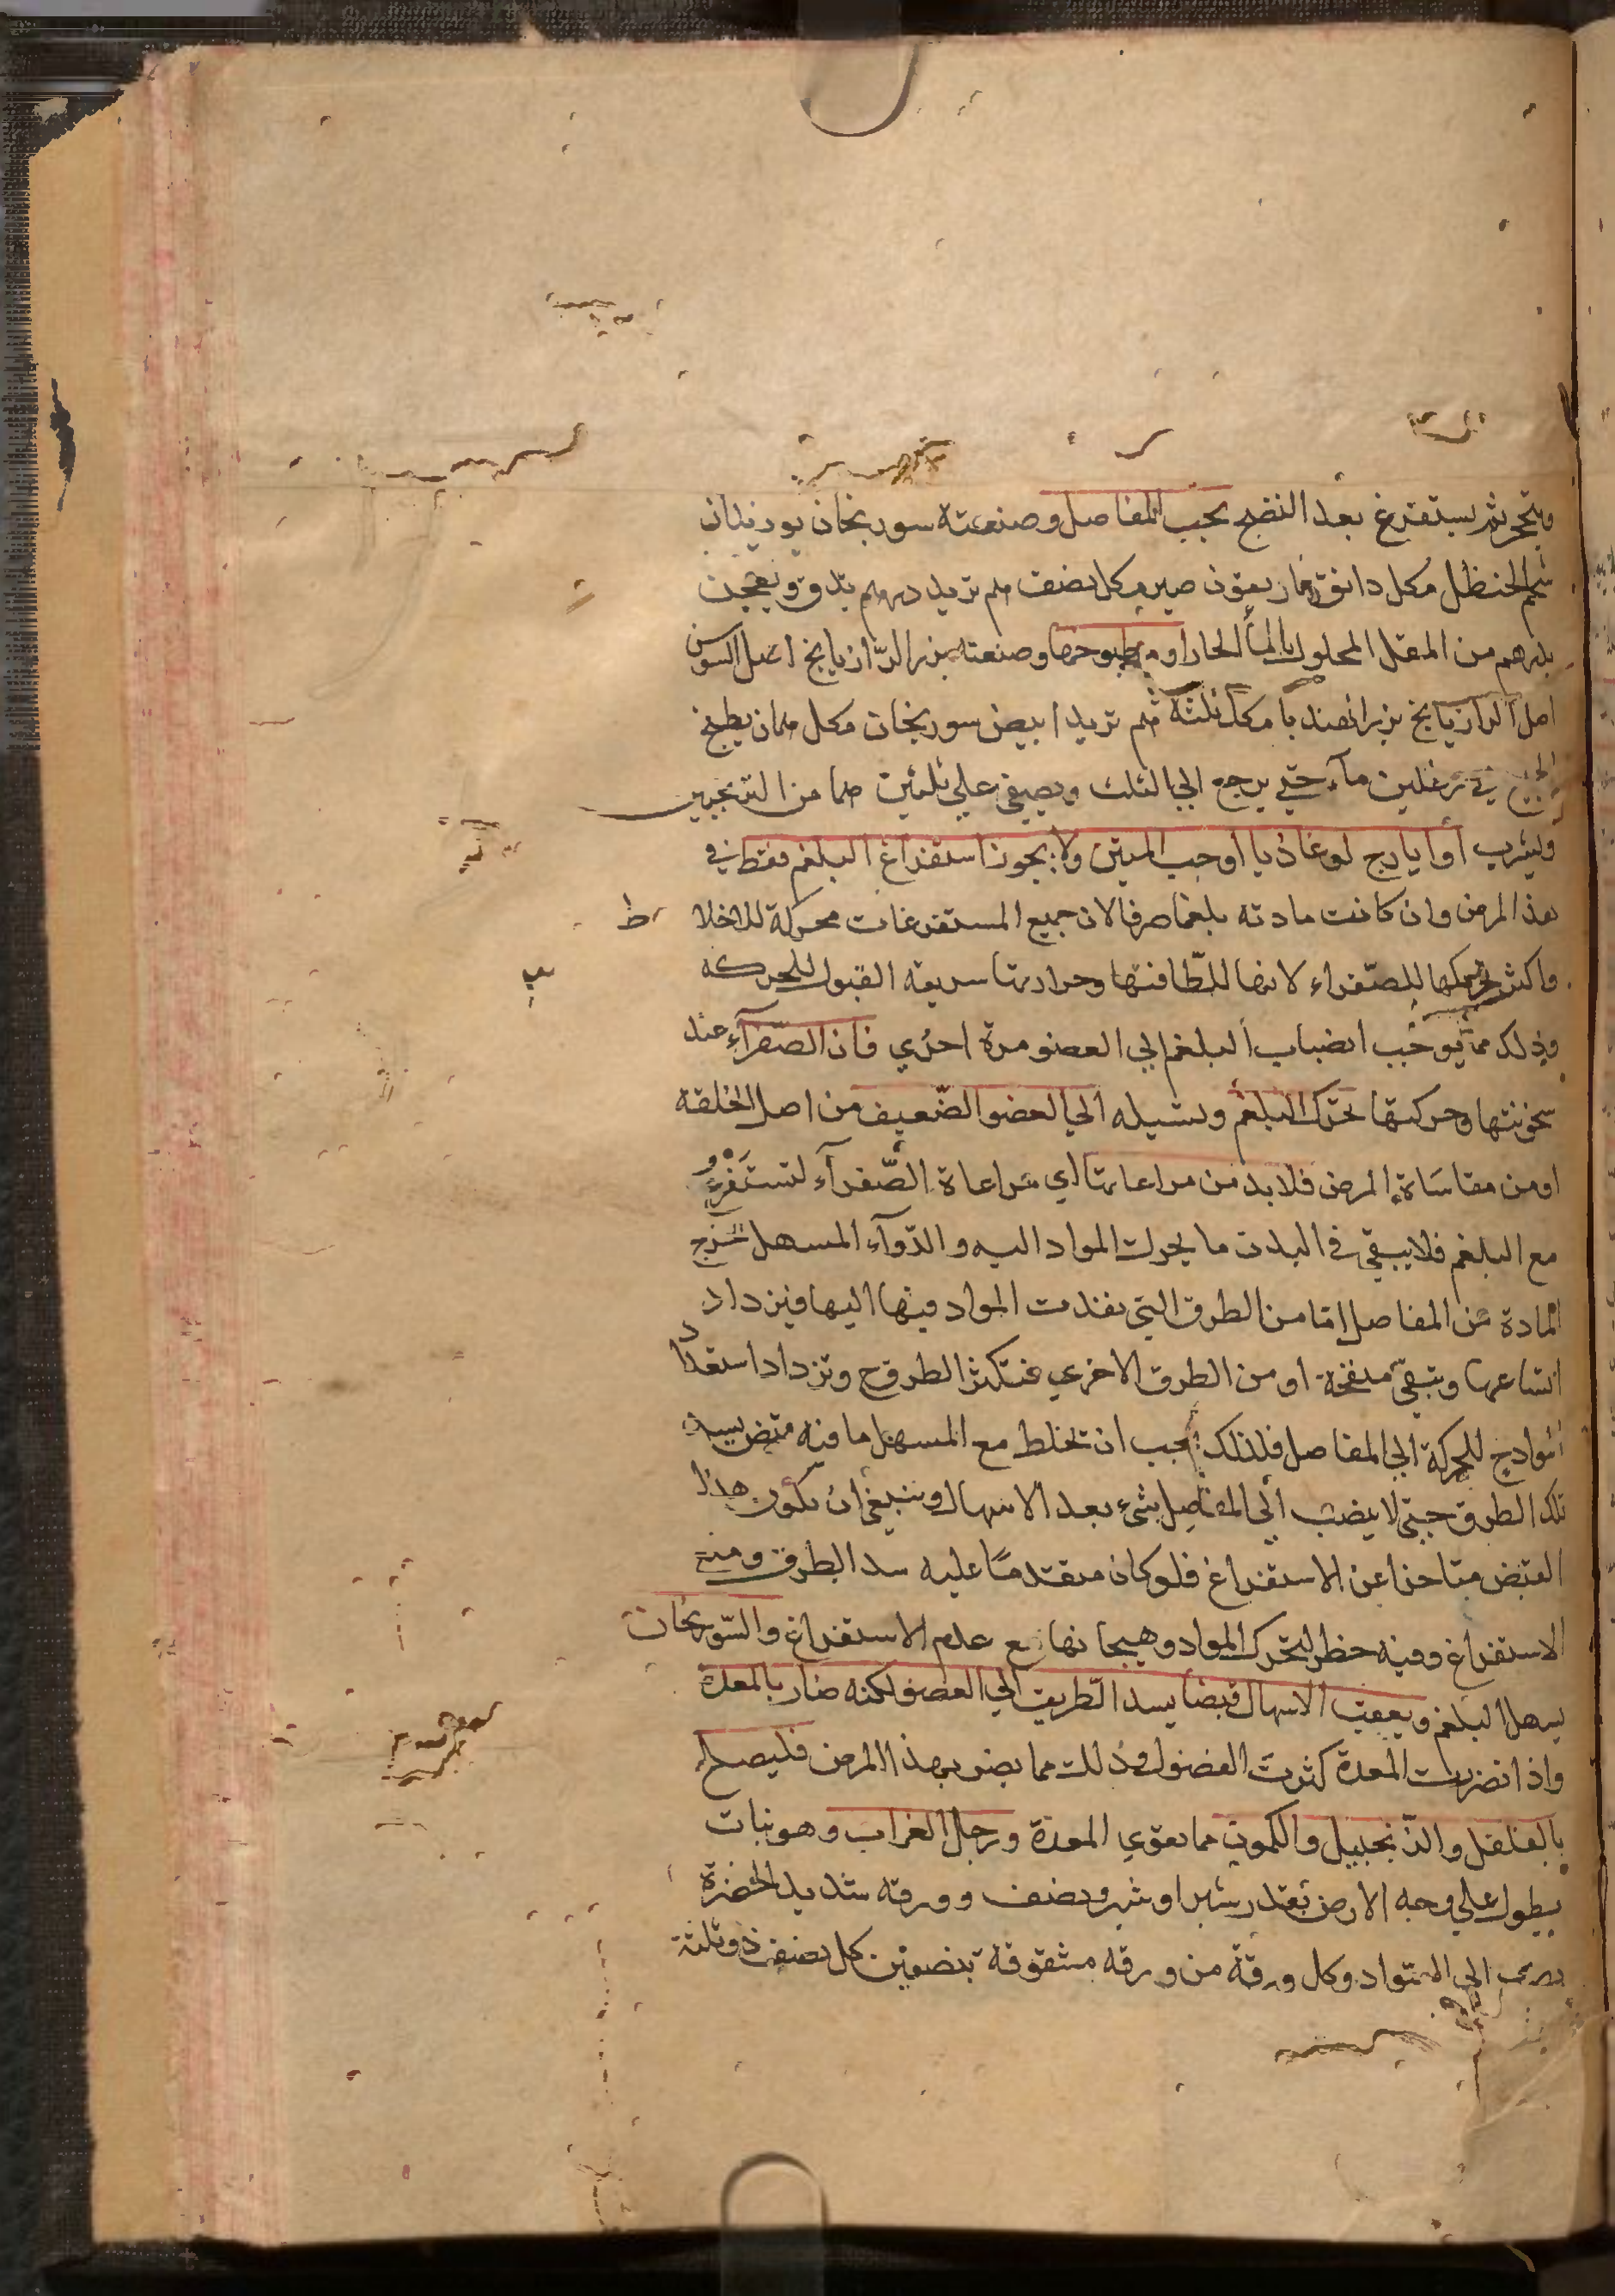 ثم يستفرغ بعد النضج بحب المفاصل وصنعته سورنجان بوزيدان
شحم الحنظل مكل دانق ماريعون صبر مكل نصف هم تربد درهم يدق ويعجن
بدرهم من المقل المحلول بالمآ الحار او مطبوخها وصنعته بزر الرازيانج اصل السوس
اصل الرازيانج بزر الهندبا مكل ثلثة هم تربد ابيض سورنجان مكل همان يطبخ
الجميع في رطلين مآء حتي يرجع الي الثلث ويصفي علي ثلثين هما من الترنجبين
وليشرب او ايارج لوغاذيا او حب المنتن ولا يجوز استفراغ البلغم فقط في
هذا المرض وان كانت مادته بلغما صرفا لان جميع المستفرغات محركة للاخلاط
واكثر تحريكها للصفراء لانها للطافتها وحرارتها سريعة القبول للحركه
وذلك مما يوجب انصباب البلغم الي العضو مرة اخري فان الصفرآء عند
سخونتها وحركتها تحرك البلغم وتسيله الي العضو الضعيف من اصل الخلقة
او من مقاساة المرض فلا بد من مراعاتها اي مراعاة الصفرآء لتستفرغ
مع البلغم فلا يبقي في البدن ما يحرك المواد اليه والدوآء المسهل يخرج
المادة من المفاصل اما من الطرق التي نفذت المواد فيها اليها فيزداد
اتساعها وتبقي منفتحة او من الطرق الاخري فتكثر الطرق ح وتزداد استعداد
المواد ح للحركة الي المفاصل فلذلك يجب ان تخلط مع المسهل ما فيه قبض يسد
تلك الطرق حتي لا ينصب الي المفاصل شيء بعد الاسهال وينبغي ان يكون هذا
القبض متاخرا عن الاستفراغ فلو كان متقدما عليه سد الطرق ومنع
الاستفراغ وفيه خطر لتحرك المواد وهيجانها مع عدم الاستفراغ والسورنجان
يسهل البلغم ويعقب الاسهال قبضا يسد الطريق الي العضو لكنه ضار بالمعدة
واذا تضررت المعدة كثرت الفضول وذلك مما يضر بهذا المرض فليصلح
بالفلفل والزنجبيل والكمون مما يقوي المعدة ورجل الغراب وهو نبات
يطول علي وجه الارض بقدر شبر او شبر ونصف وورقه شديد الخضرة
يضرب الي السواد وكل ورقة من ورقه مشقوقة بنصفين كل نصف ذو ثلثة